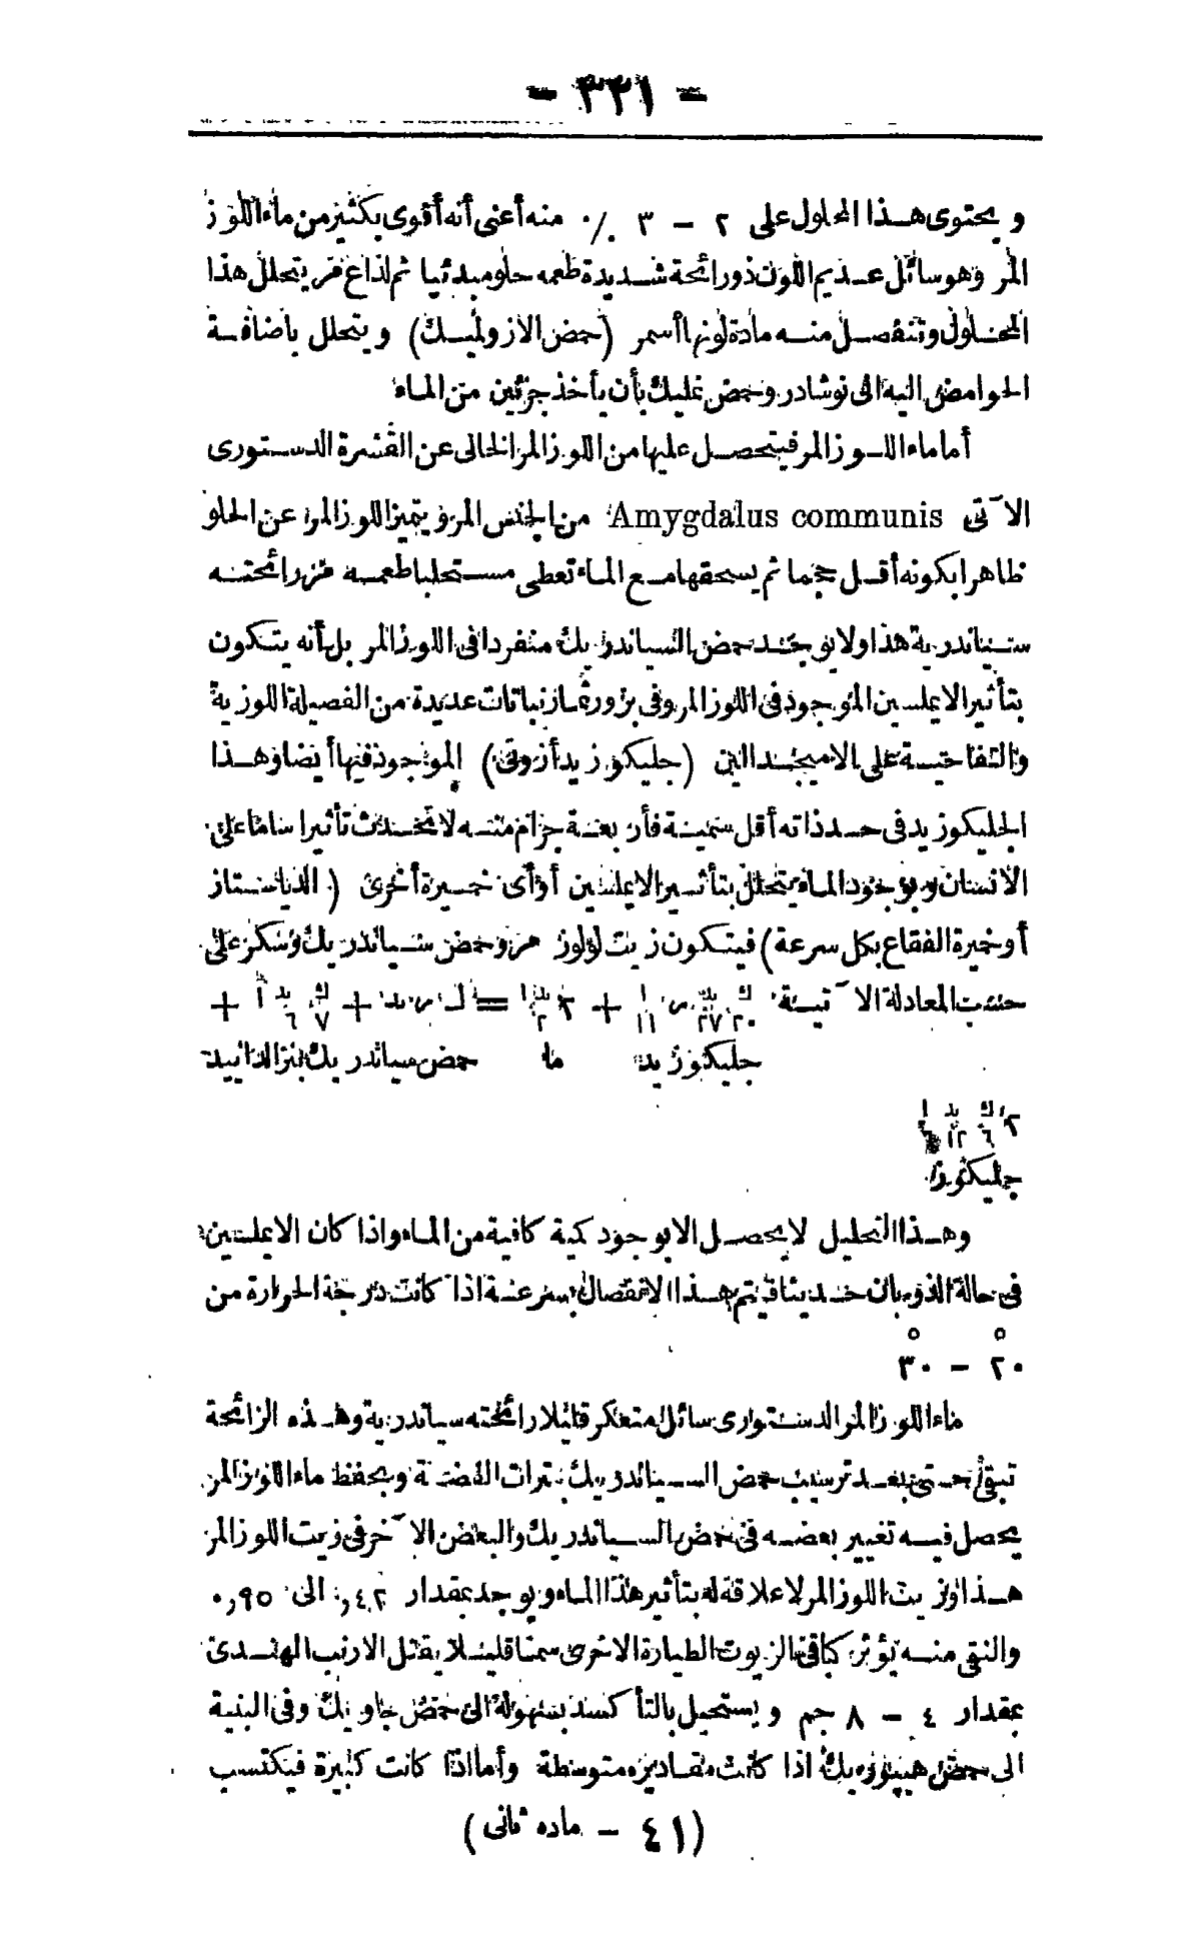 - ٣٢١ -
ويحتوى هذا المحلول على ٢ - ٣ ٪ منه أعنى أنه أقوى بكثير من ماء اللوز
المر وهو سائل عديم اللون ذو رائحة شديدة طعمه حلو مبدئيا ثم لذاع مر يتحلل هذا
المحلول وتنفصل منه مادة لونها أسمر (حمض الازولميك) ويتحلل باضافة
الحوامض اليه الى نوشادر وحمض نمليك بأن يأخذ جزئين من الماء
أما ماء اللوز المر فيتحصل عليها من اللوز المر الخالى عن القشرة الدستورى
الآتى Amygdalus communis من الجنس المر ويتميز اللوز المر عن الحلو
ظاهرا بكونه أقل حجما ثم يسحقها مع الماء تعطى مستحلبا طعمه مر رائحته
سياندرية هذا ولا يوجد حمض السياندريك منفردا فى اللوز المر بل أنه يتكون
بتأثير الايملسين الموجود فى اللوز المر وفى بزور ثمار نباتات عديدة من الفصيلة اللوزية
والتفاحية على الاميجدالين (جليكوزيد أزوتى) الموجود فيها أيضا وهذا
الجليكوزيد فى حد ذاته أقل سمية فأربعة جرام منه لا تحدث تأثيرا ساما على
الانسان وبوجود الماء يتحلل بتأثير الايملسين أو أى خميرة أخرى (الدياستاز
أو خميرة الفقاع بكل سرعة) فيتكون زيت لولوز مر وحمض سياندريك وسكر على
حسب المعادلة الآتية ك٢٠ يد٢٧ ز ا١١ + ٢ يد٢ ا = ك ز يد + ك٧ يد٦ ا +
جليكوزيد ما حمض سياندريك بنزالدائيد
٢ ك٦ يد١٢ ا٦
جليكوزا
وهذا التحليل لا يحصل الا بوجود كمية كافية من الماء واذا كان الايملسين
فى حالة الذوبان حديثا فيتم هذا الانفصال بسرعة اذا كانت درجة الحرارة من
٢٠° - ٣٠°
ماء اللوز المر الدستورى سائل متعكر قليلا رائحته سياندرية وهذه الرائحة
تبقى حتى بعد ترسيب حمض السياندريك بنترات الفضة وبحفظ ماء اللوز المر
يحصل فيه تغيير بعضه فى حمض السياندريك والبعض الآخر فى زيت اللوز المر
هذا وزيت اللوز المر لا علاقة له بتأثير هذا الماء ويوجد بمقدار ٤٢ر. الى ٩٥ر٠
والنقى منه يؤثر كباقى الزيوت الطيارة الاخرى سما قليلا يقتل الارنب الهندى
بمقدار ٤ - ٨ جم ويستحيل بالتأكسد بسهولة الى حمض جاويك وفى البنية
الى حمض هيپوريك اذا كانت مقاديره متوسطة وأما اذا كانت كبيرة فيكتسب
(٤١ - ماده ثانى)